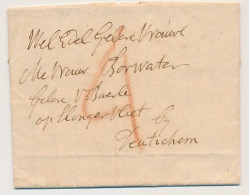 Wel Edel Gebore Vrouwe
Mevrouw Borwater
Gebore V Baerle
op Slangevliet
by
Deutichem